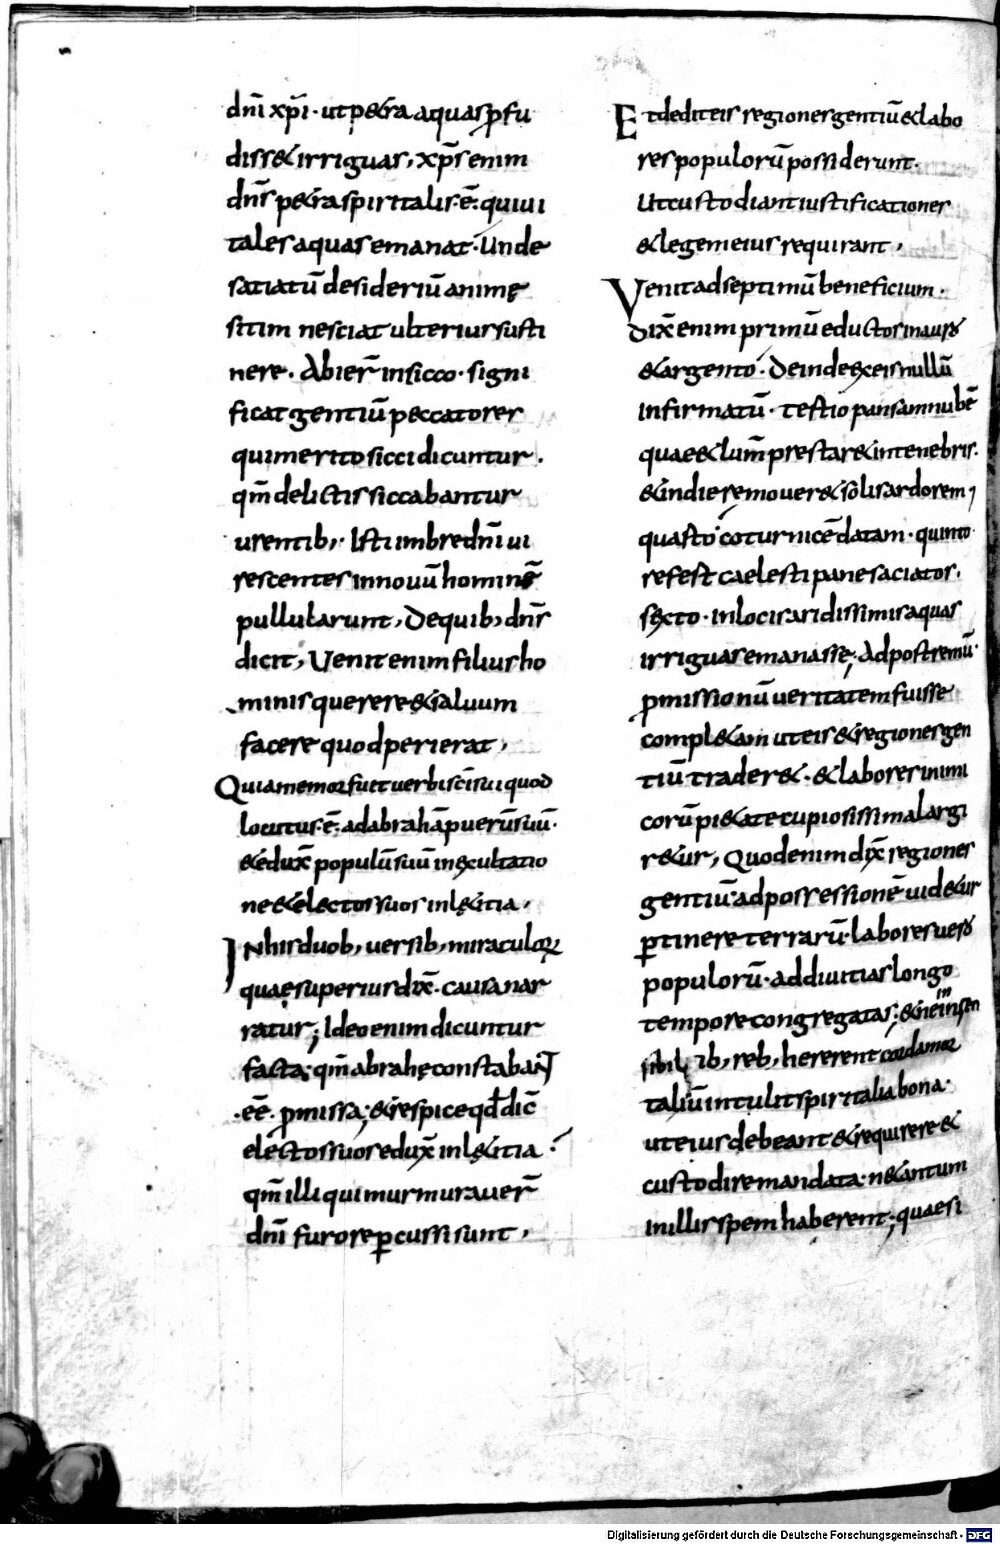 dnī xpī · ut p&ra aquas pfu
diss& irriguas, xps̄ enim
dns̄ p&ra spiritalis · ē · qui ui
tales aquas emanat · Unde
satiatū desideriū animę
sitim nesciat ulterius susti
nere · Abier̄ in sicco · signi
ficat gentiū peccatores
qui merito sicci dicuntur ·
qm̄ delictis siccabantur
urentib; · Isti imbre dnī ui
rescentes in nouū hominē
pullularunt, De quib; dns̄
dicit, Uenit enim filius ho
minis querere & saluum
facere quod perierat,
Quia memor fuit uerbi sc̄i sui quod
locutus · ē · ad abrahā puerū suū ·
& edux̄ populū suū in exultatio
ne & electos suos in l&itia,
IN his duob; uersib; miraculoꝝ
quae superius dix̄ · causa nar
ratur; Ideo enim dicuntur
facta; qm̄ abrahę constabant
· eē · pmissa; & respice qđ dic̄
electos suos edux̄ in l&itia;
qm̄ illi qui murmurauer̄
dnī furore pcussi sunt,
Et dedit eis regiones gentiū & labo
res populorū possiderunt ·
Ut custodiant iustificationes
& legem eius requirant,
Venit ad septimū beneficium ·
Dix̄ enim primū eductos in auro
& argento · Deinde ex eis nullū
infirmatū · tertio pansam nubē
quae & lum̄ prestar& in tenebris ·
& in die remouer& solis ardorem;
quarto coturnicē datam · quinto
refert caelesti pane saciatos ·
sexto · in locis aridissimis aquas
irriguas emanasse; Ad postremū ·
pmissionū ueritatem fuisse
compl&am ut eis & regiones gen
tiū trader& · & labores inimi
corū pi&ate cupiosissima largi
r&ur, Quod enim dix̄ regiones
gentiū · ad possessionē uid&ur
ptinere terrarū · labores uero
populorū · ad diuitias longo
tempore congregatas; & ne in sen
sibilib; reb; hererent corda mor
taliū intulit spiritalia bona ·
ut eius debeant & requirere &
custodire mandata · ne tantum
in illis spem haberent; quae si